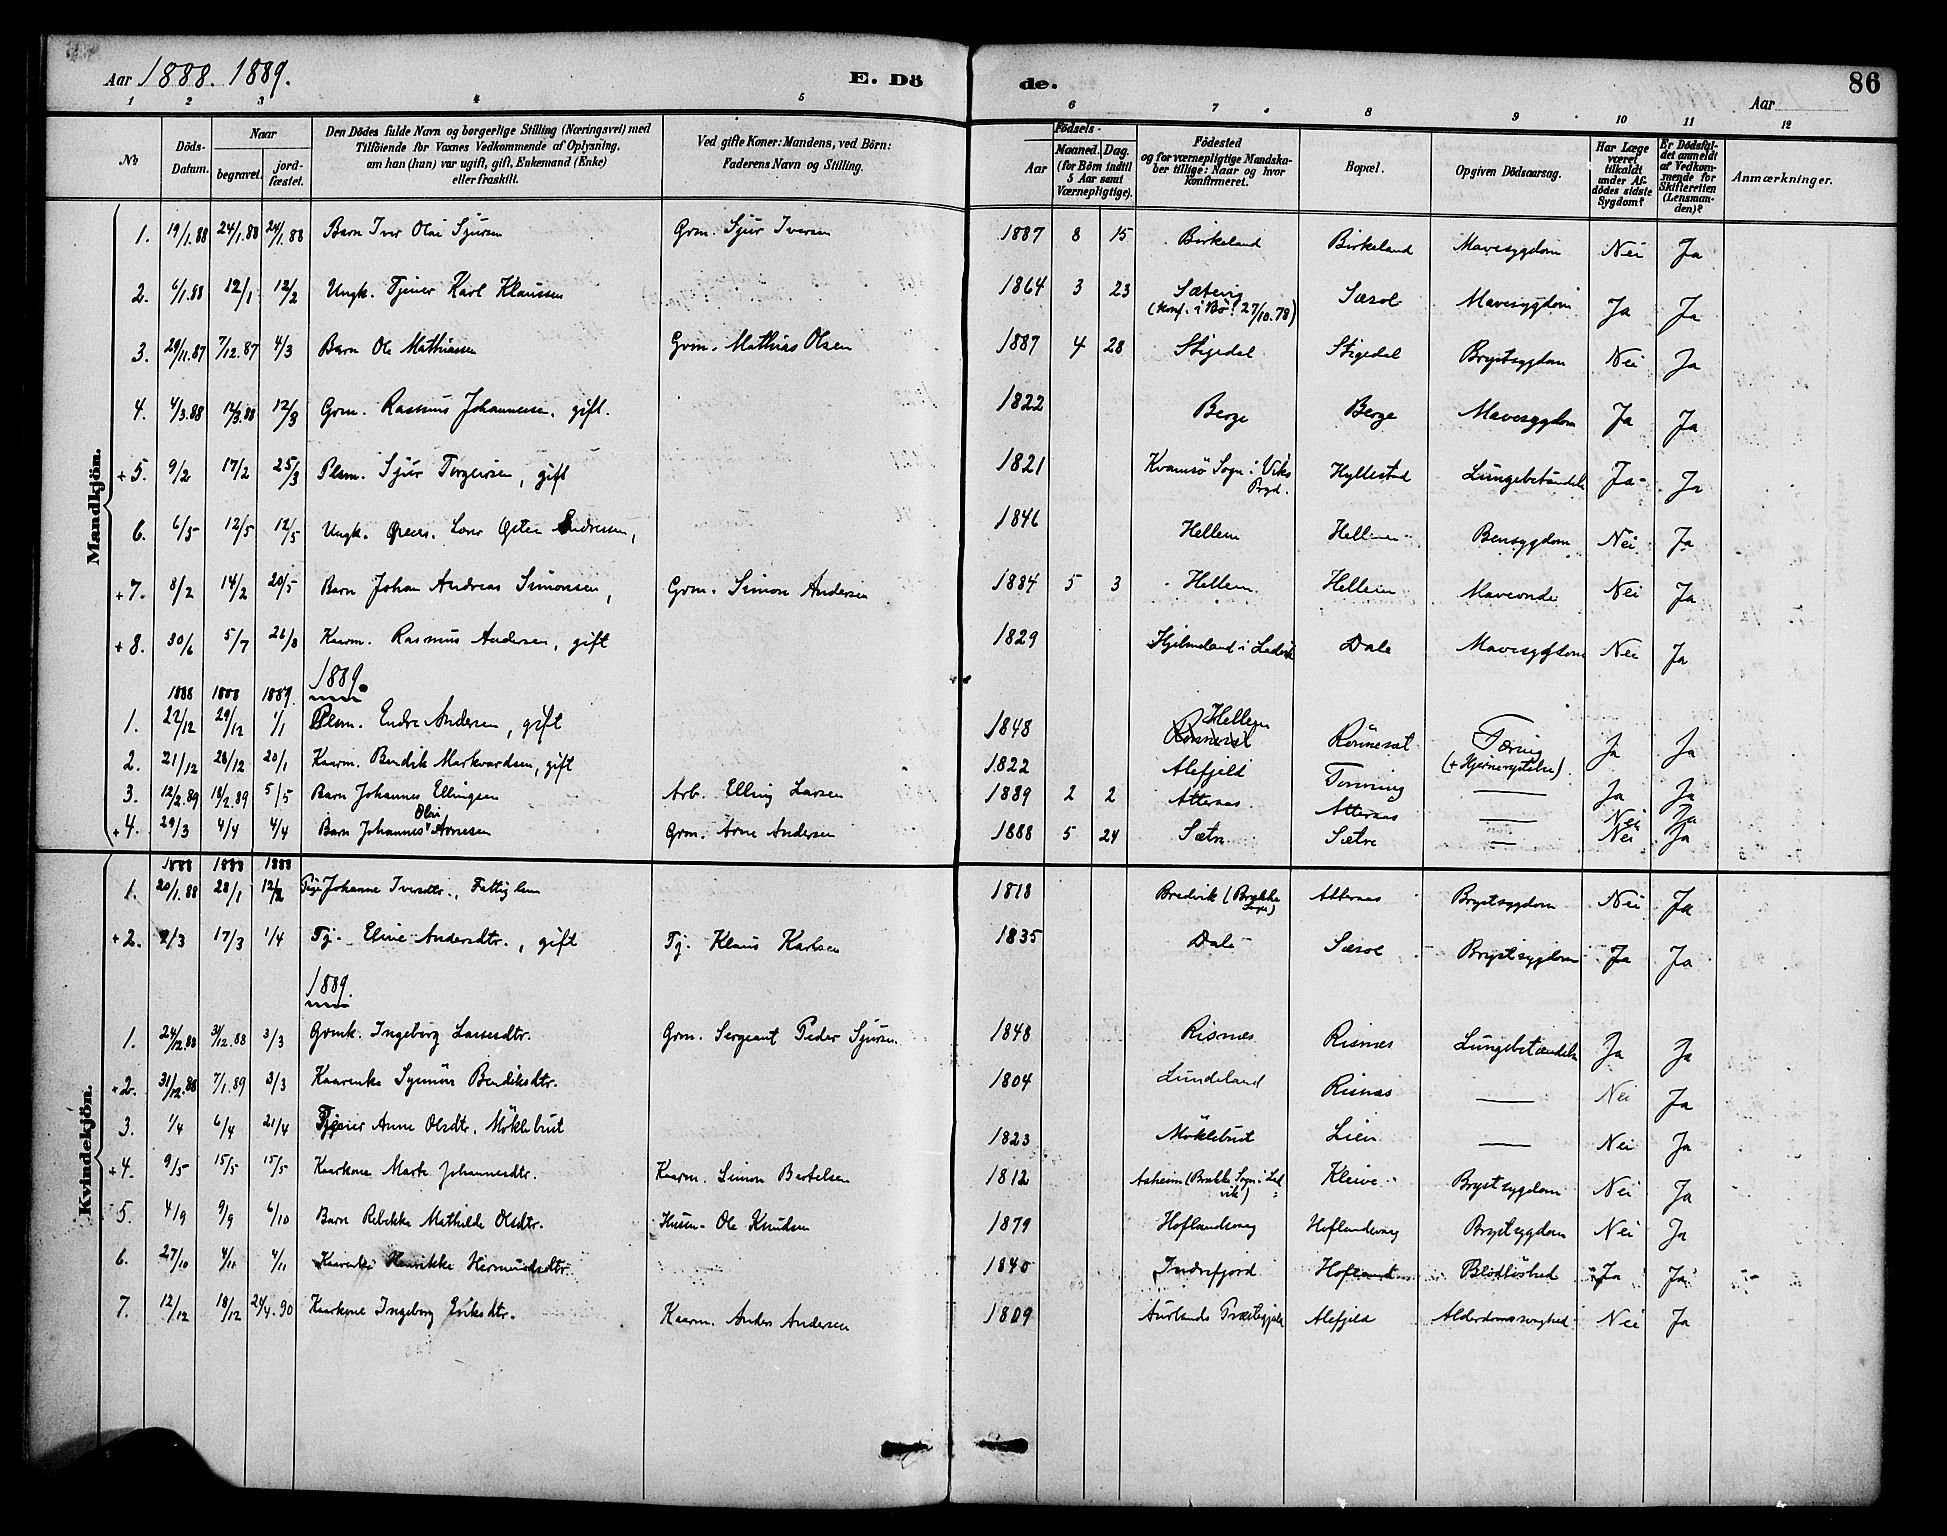 Aar 1888. 1889.
E. Dö de.
86
Aar
1 2 3 4 5 6 7 8 9 10 11 12
No
Döds-Datum.
Naar
begravet.
jord-fæstet.
Den Dödes fulde Navn og borgerlige Stilling (Næringsvei) med
Tilföiende for Voxnes Vedkommende af Oplysning,
om han (hun) var ugift, gift, Enkemand (Enke)
eller fraskilt.
Ved gifte Koner: Mandens, ved Börn:
Faderens Navn og Stilling.
Födsels-
Aar
Maaned. Dag.
(for Börn indtil
5 Aar samt
Værnepligtige).
Födested
og for værnepligtige Mandska-
ber tillige: Naar og hvor
konfirmeret.
Bopæl.
Opgiven Dödsaarsag.
Har Læge
været
tilkaldt
under Af-
dödes sidste
Sygdom?
Er Dödsfal-
det anmeldt
af Vedkom-
mende for
Skifteretten
(Lensman-
den)?
Anmærkninger.
Mandkjön.
1. 19/1.88 24/1.88 24/1.88 Barn Iver Olai Sjursen Grm. Sjur Iversen 1887 8 15 Birkeland Birkeland Mavesygdom Nei Ja
2. 6/1.88 12/1 12/2 Ungk. Tjener Karl Klaussen 1864 3 23 Sætevig Sæsol Mavesygdom Ja Ja
(Konf. i Bö: 27/10.78)
3. 29/11.87 7/12.87 4/3 Barn Ole Mathiassen Grm. Mathias Olsen 1887 4 28 Stigedal Stigedal Brystsygdom Nei Ja
4. 4/3.88 12/3.88 12/3 Grm. Rasmus Johannessen, gift. 1822 Berge Berge Mavesygdom Ja Ja
+5. 9/2 17/2 25/3 Plsm. Sjur Torgersen, gift 1821 Kvamsö Sogn i Viks Hyllestad Lungebetændelse Ja Ja
Prgd.
6. 6/5 12/5 12/5 Ungk. Endressen, 1846 Hellem Bensygdom Nei Ja
+7. 8/2 14/2 20/5 Barn Johan Andreas Simonsen, Grm. Simon Andersen 1884 5 3 Hellem Helleim Maveonde Nei Ja
+8. 30/6 5/7 26/8 Kaarm. Rasmus Andersen, gift 1829 Hjelmeland i Ladvik Dale Mavesygdom Nei Ja
1889.
1888 1888 1889.
1. 22/12 29/12 1/1 Plsm. Endre Andersen, gift 1848 Hellem Rönneset Tæring Ja Ja
2. 21/12 28/12 20/1 Kaarm. Bendik Markvardsen, gift 1822 Alefjeld Torning (+ Hjernerystelse). Ja Ja
3. 12/2.89 18/2.89 5/5 Barn Johannes Ellingsen Arb. Elling Larsen 1889 2 2 Atternas Atternas — Nei Ja
+4. 29/3 4/4 4/4 Barn Johannes Olai Arnesen Grm. Arne Andersen 1888 5 24 Sætre Sætre — Nei Ja
Kvindekjön.
1888 1888 1888
1. 20/1.88 28/1 12/2 Pige Johanne Iversdtr., Fattiglem 1818 Bredvik (Brekke Sogn) Atternas Brystsygdom Nei Ja
+2. /3 17/3 1/4 Tj. Eline Andersdtr., gift Tj. Klaus Karlsen 1835 Dale Sæsol Brystsygdom Ja Ja
1889.
1. 24/12.88 31/12.88 3/3 Grmk. Ingeborg Lassesdtr. Grm. Sergeant Peder Sjursen. 1848 Risnæs Risnæs Lungebetændelse Ja Ja
+2. 31/12.88 7/1.89 3/3 Kaarenke Synnöv Bendiksdtr. 1804 Lundeland Risnæs — Nei Ja
3. 1/4 6/4 21/4 Anne Olsdtr. Möklebust 1823 Möklebust Lien — Nei Ja
+4. 9/5 15/5 15/5 Kaarkone Marte Johannesdtr. Kaarm. Simon Bertelsen 1812 Aaheim (Brekke Sogn i Lad- Kleive Brystsygdom Nei Ja
vik)
5. 4/9 9/9 6/10 Barn Rebekka Mathilde Olsdtr. Husm. Ole Knudsen 1879 Hoflandsvag Hoflandsvag Brystsygdom Nei Ja
6. 27/10 4/11 4/11 Kaarenke Henrikke Hermundsdtr. 1840 Indrefjord Hofland Blodløshed Ja Ja
7. 12/12 18/12 24/4.90 Kaarkone Ingeborg Eriksdtr. Kaarm. Anders Andersen 1809 Aurlands Præstegjeld Alefjeld Alderdomssvaghed Nei Ja